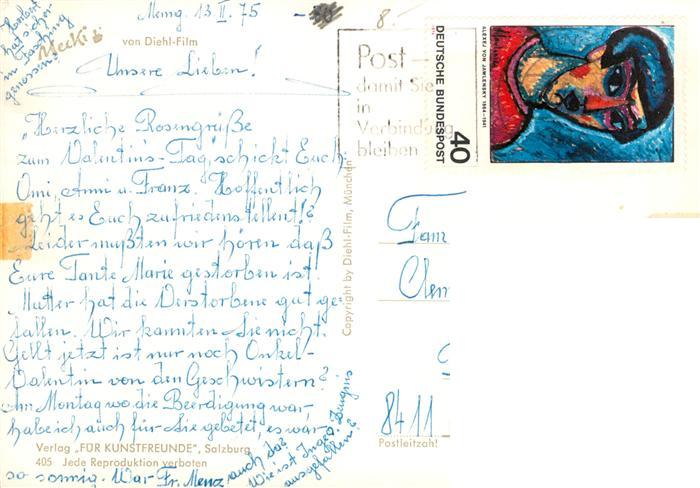 Memg. 13.II.75
8.-
hat schön
im Fasching
genossen!
Mecki
von Diehl-Film
Unsere Lieben!
"Herzliche Rosengrüße
zum Valentins-Tag", schickt Euch
Omi, Anni u. Franz. Hoffentlich
geht es Euch zufriedenstellent!?
Leider mußten wir hören daß
Eure Tante Marie gestorben ist.
Mutter hat die Verstorbene gut ge-
fallen. Wir kannten Sie nicht.
Gellt jetzt ist nur noch Onkel-
Valentin von den Geschwistern?
Am Montag wo die Beerdigung war
habe ich auch für Sie gebetet, es war
so sonnig. War Fr. Menz auch da?
Wie ist Inges Zeugnis
ausgefallen?
Verlag „FÜR KUNSTFREUNDE", Salzburg
405 Jede Reproduktion verboten
Copyright by Diehl-Film, München
Post -
damit Sie
in
Verbindung
bleiben
DEUTSCHE BUNDESPOST
40
ALEXEJ VON JAWLENSKY 1864-1941
Fam
Clem
8411
Postleitzahl